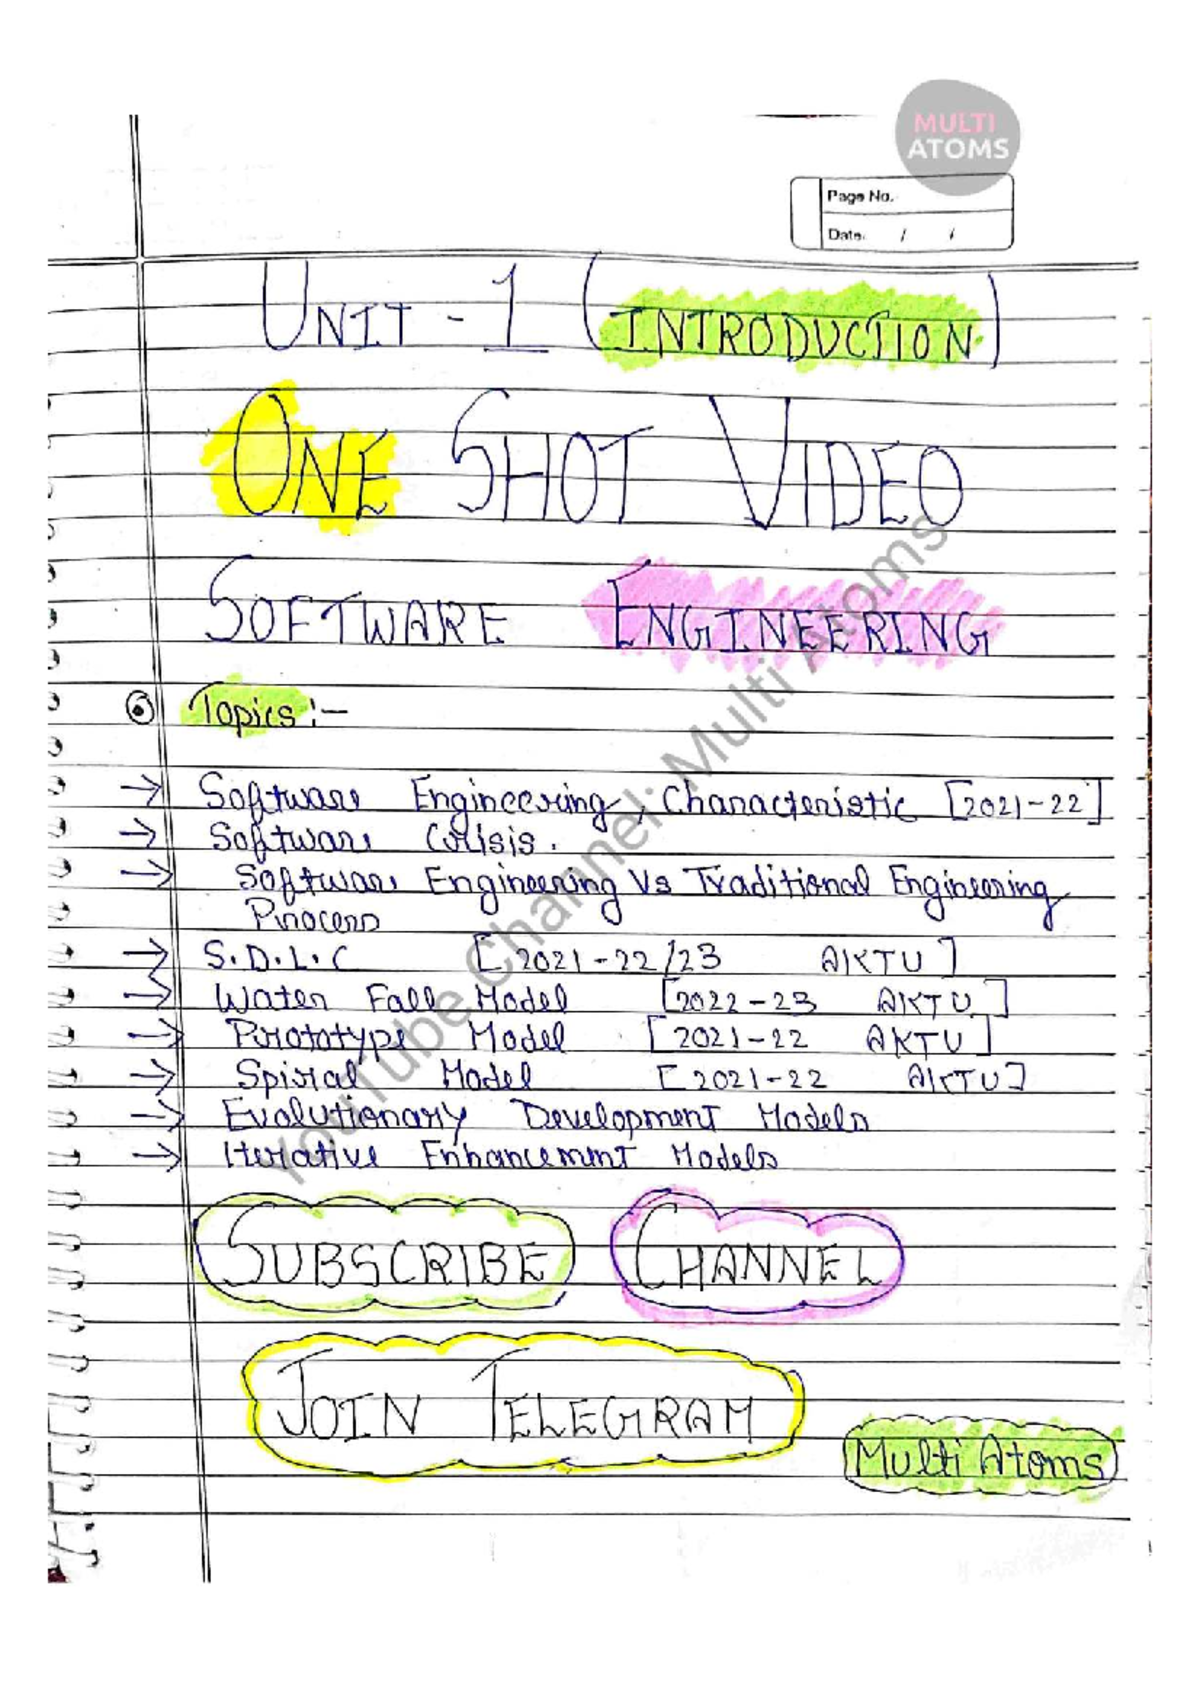 MULTI
ATOMS
Page No.
Date: / /
UNIT - 1 (INTRODUCTION)
ONE SHOT VIDEO
SOFTWARE ENGINEERING
Topics :-
→ Software Engineering, Characteristic [2021-22]
→ Software Crisis.
→ Software Engineering Vs Traditional Engineering
Process
→ S.D.L.C [2021-22/23 AKTU]
→ Water Fall Model [2022-23 AKTU]
→ Prototype Model [2021-22 AKTU]
→ Spiral Model [2021-22 AKTU]
→ Evolutionary Development Models
→ Iterative Enhancement Models
SUBSCRIBE CHANNEL
JOIN TELEGRAM
Multi Atoms
YouTube Channel: Multi Atoms